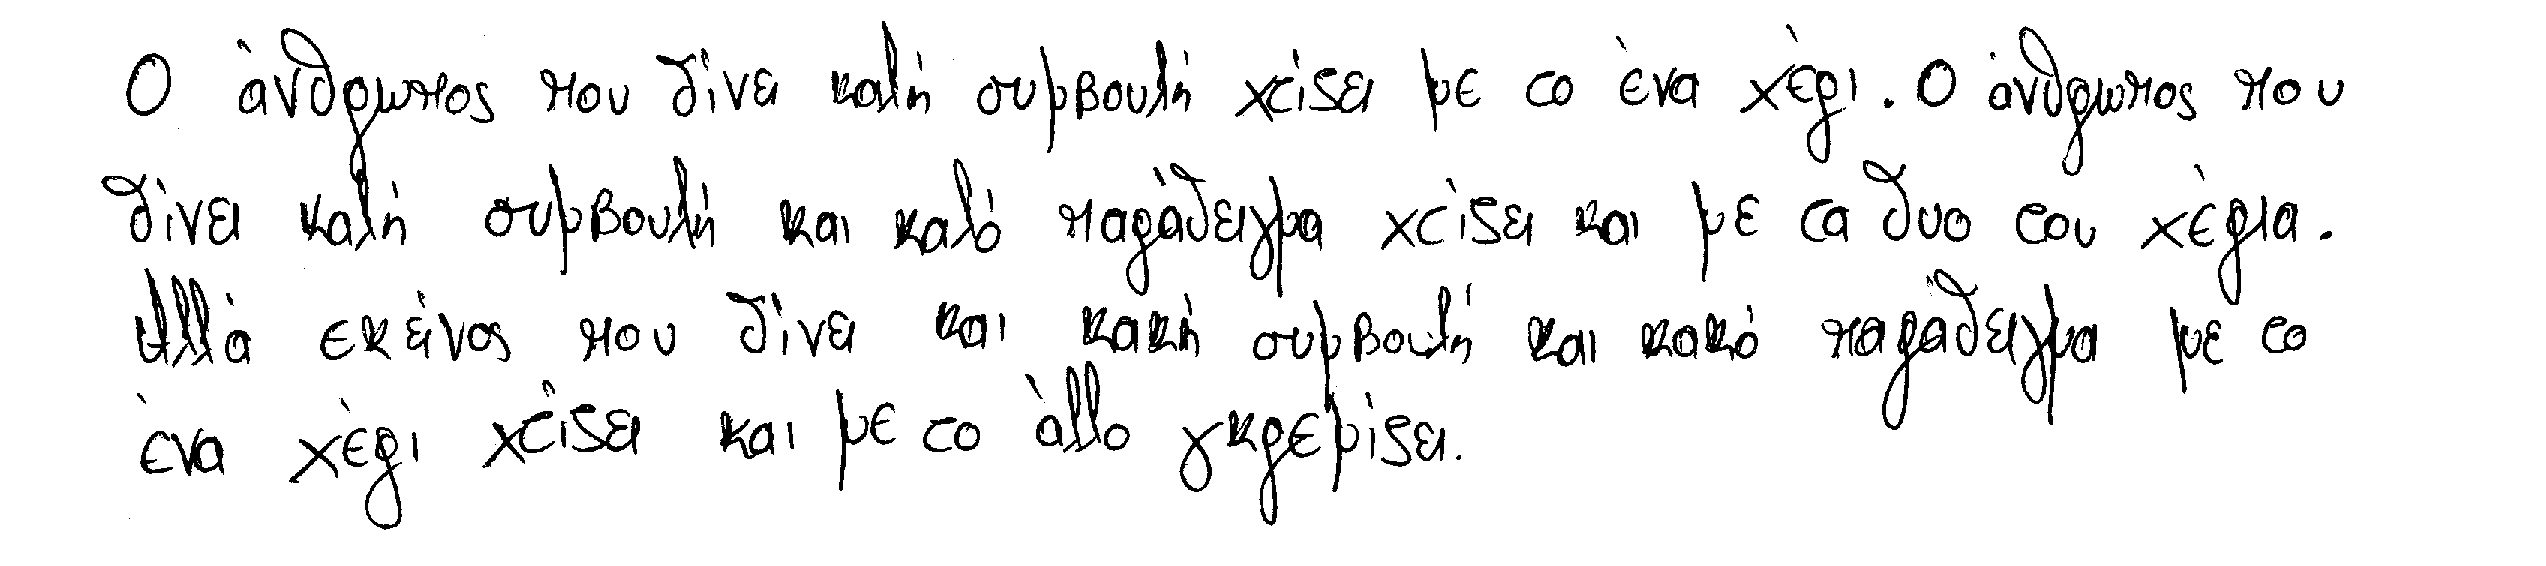 Ο άνθρωπος που δίνει καλή συμβουλή χτίζει με το ένα χέρι. Ο άνθρωπος που
δίνει καλή συμβουλή και καλό παράδειγμα χτίζει και με τα δυο του χέρια.
Αλλά εκείνος που δίνει και κακή συμβουλή και κακό παράδειγμα με το
ένα χέρι χτίζει και με το άλλο γκρεμίζει.